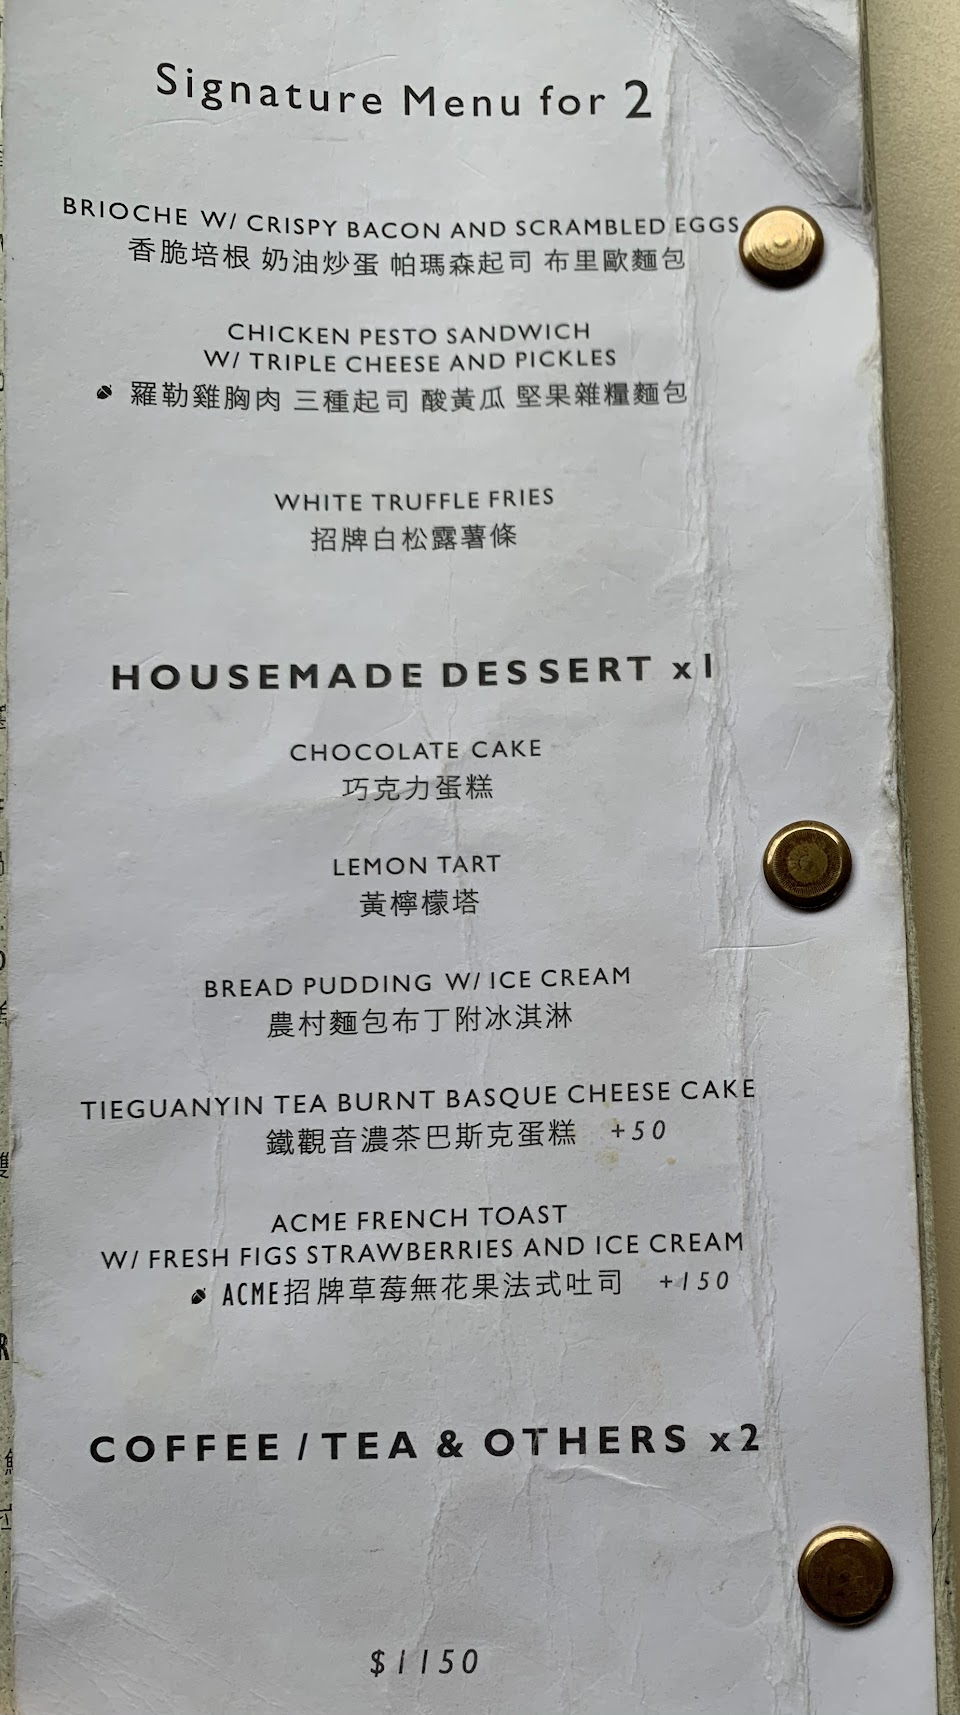 Signature Menu for 2
BRIOCHE W/ CRISPY BACON AND SCRAMBLED EGGS
香脆培根 奶油炒蛋 帕瑪森起司 布里歐麵包
CHICKEN PESTO SANDWICH
W/ TRIPLE CHEESE AND PICKLES
羅勒雞胸肉 三種起司 酸黃瓜 堅果雜糧麵包
WHITE TRUFFLE FRIES
招牌白松露薯條
HOUSEMADE DESSERT x1
CHOCOLATE CAKE
巧克力蛋糕
LEMON TART
黃檸檬塔
BREAD PUDDING W/ ICE CREAM
農村麵包布丁附冰淇淋
TIEGUANYIN TEA BURNT BASQUE CHEESE CAKE
鐵觀音濃茶巴斯克蛋糕 +50
ACME FRENCH TOAST
W/ FRESH FIGS STRAWBERRIES AND ICE CREAM
ACME招牌草莓無花果法式吐司 +150
COFFEE / TEA & OTHERS x2
$1150